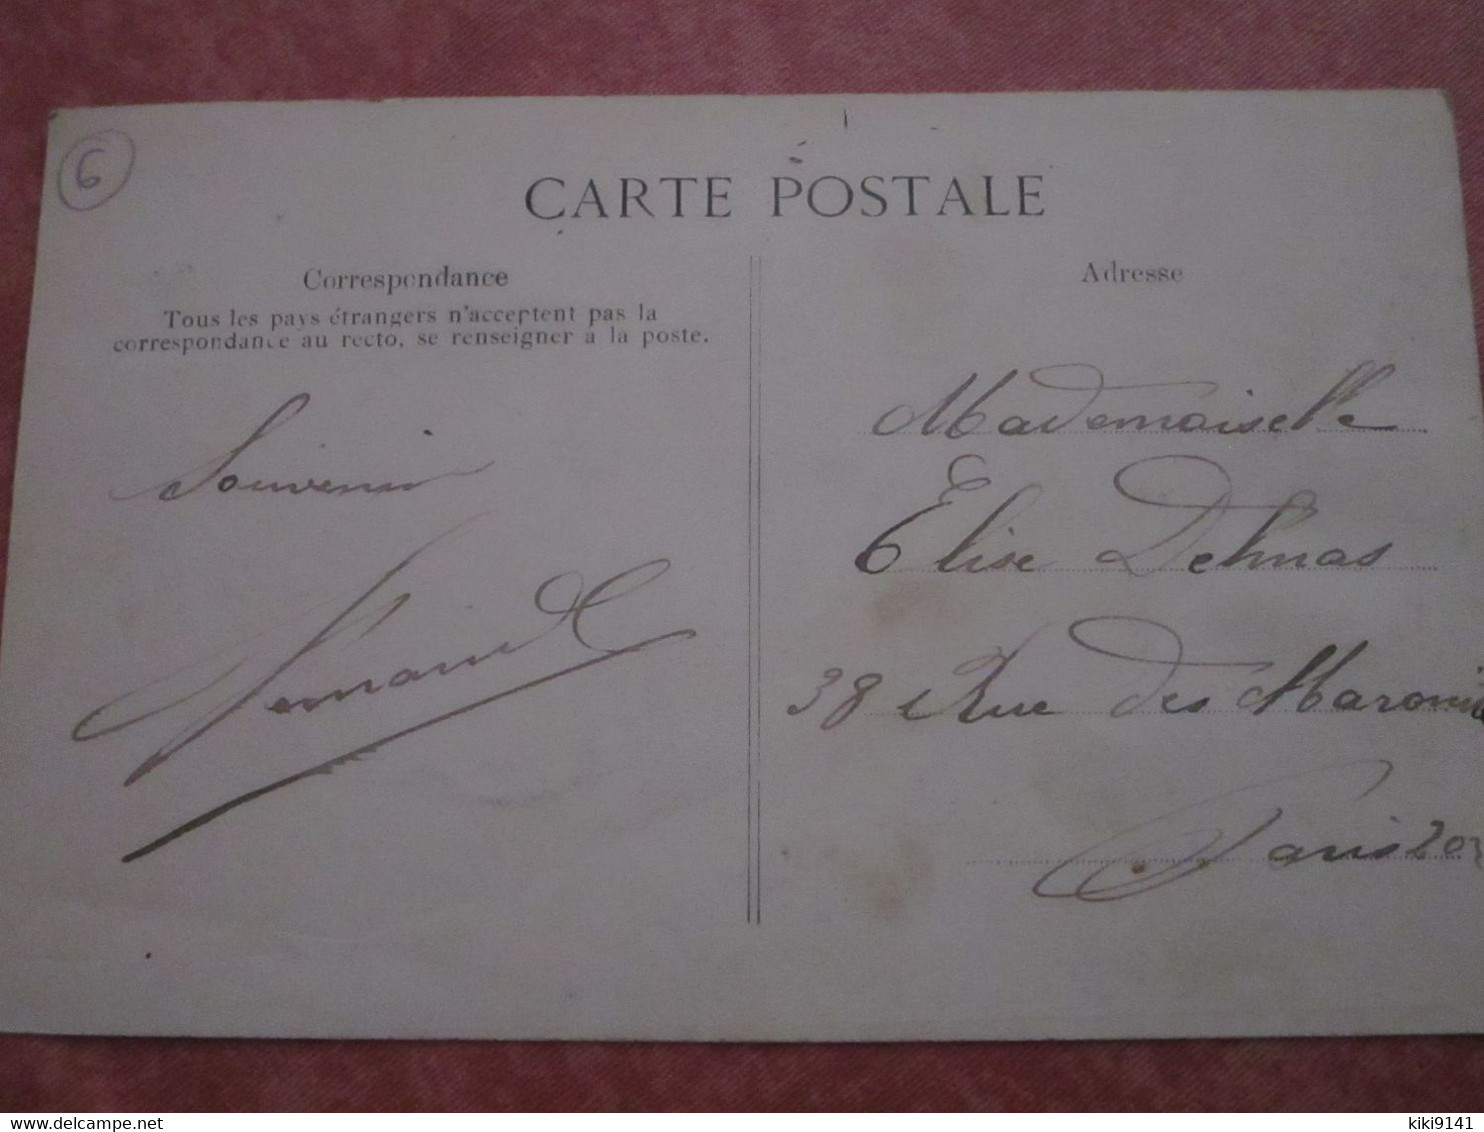 6
CARTE POSTALE
Correspondance
Tous les pays étrangers n'acceptent pas la
correspondance au recto, se renseigner à la poste.
Souvenir
Fernand
Adresse
Mademoiselle
Elise Delmas
38 Rue des Maronit
Paris 20
delcampe.net
kiki9141